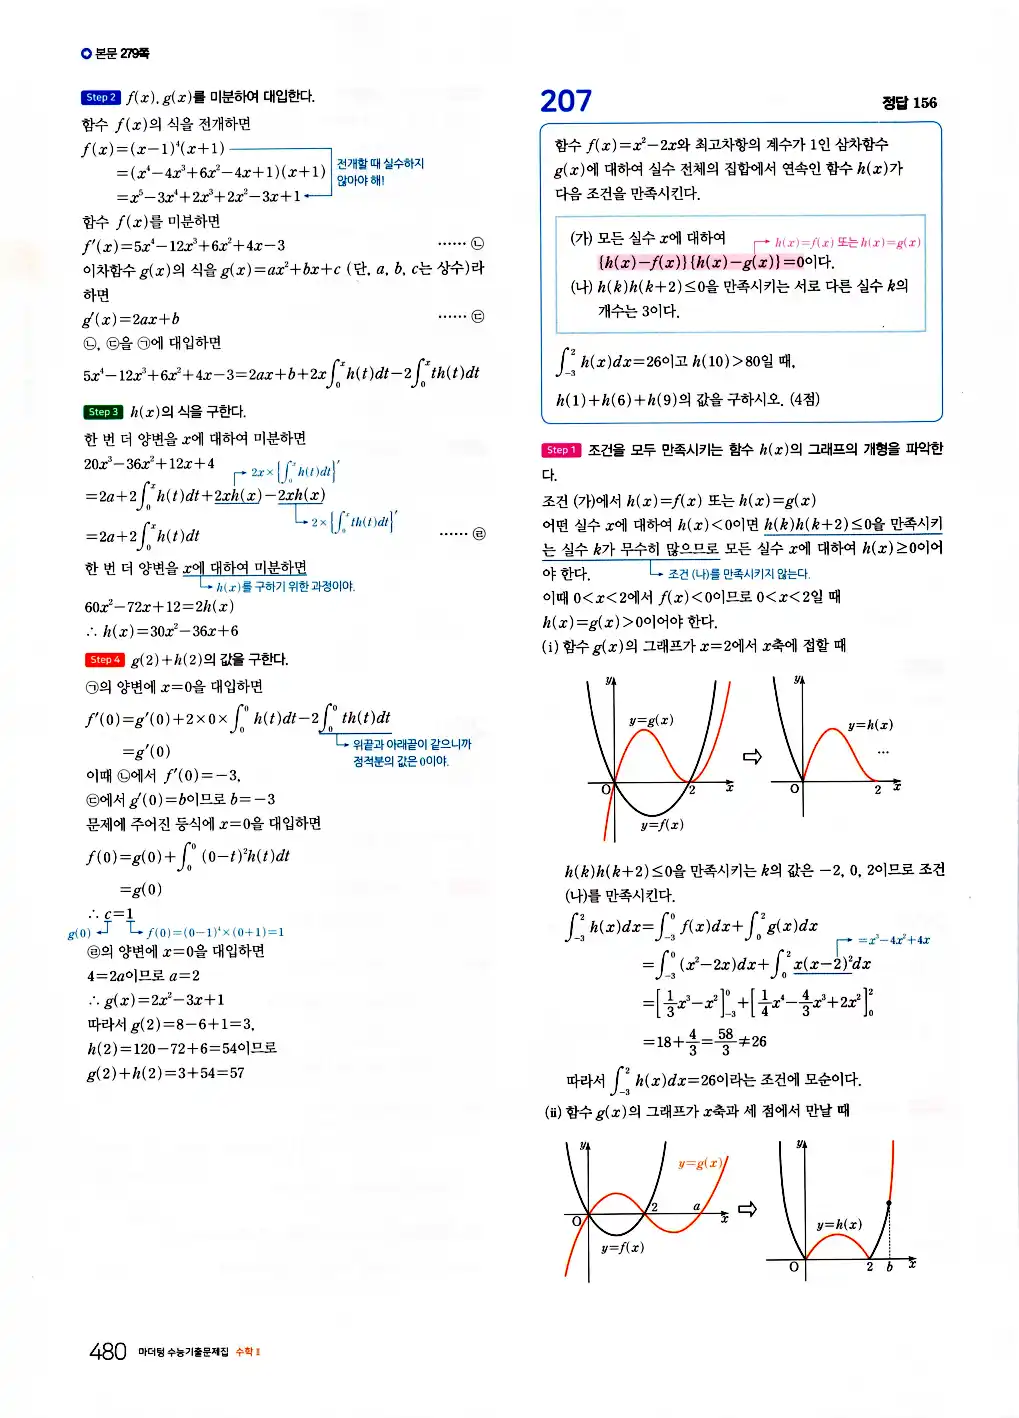 본문 279쪽
Step 2 f(x), g(x)를 미분하여 대입한다.
함수 f(x)의 식을 전개하면
f(x)=(x−1)⁴(x+1)
=(x⁴−4x³+6x²−4x+1)(x+1)
=x⁵−3x⁴+2x³+2x²−3x+1
전개할 때 실수하지
않아야 해!
함수 f(x)를 미분하면
f′(x)=5x⁴−12x³+6x²+4x−3 …… ㉡
이차함수 g(x)의 식을 g(x)=ax²+bx+c (단, a, b, c는 상수)라
하면
g′(x)=2ax+b …… ㉢
㉡, ㉢을 ㉠에 대입하면
5x⁴−12x³+6x²+4x−3=2ax+b+2x∫₀ˣh(t)dt−2∫₀ˣth(t)dt
Step 3 h(x)의 식을 구한다.
한 번 더 양변을 x에 대하여 미분하면
20x³−36x²+12x+4
2x×{∫₀ˣh(t)dt}′
=2a+2∫₀ˣh(t)dt+2xh(x)−2xh(x)
2×{∫₀ˣth(t)dt}′
=2a+2∫₀ˣh(t)dt …… ㉣
한 번 더 양변을 x에 대하여 미분하면
h(x)를 구하기 위한 과정이야.
60x²−72x+12=2h(x)
∴ h(x)=30x²−36x+6
Step 4 g(2)+h(2)의 값을 구한다.
㉠의 양변에 x=0을 대입하면
f′(0)=g′(0)+2×0×∫₀⁰h(t)dt−2∫₀⁰th(t)dt
=g′(0)
위끝과 아래끝이 같으니까
정적분의 값은 0이야.
이때 ㉡에서 f′(0)=−3,
㉢에서 g′(0)=b이므로 b=−3
문제에 주어진 등식에 x=0을 대입하면
f(0)=g(0)+∫₀⁰(0−t)²h(t)dt
=g(0)
∴ c=1
g(0) f(0)=(0−1)⁴×(0+1)=1
㉣의 양변에 x=0을 대입하면
4=2a이므로 a=2
∴ g(x)=2x²−3x+1
따라서 g(2)=8−6+1=3,
h(2)=120−72+6=54이므로
g(2)+h(2)=3+54=57
207 정답 156
함수 f(x)=x²−2x와 최고차항의 계수가 1인 삼차함수
g(x)에 대하여 실수 전체의 집합에서 연속인 함수 h(x)가
다음 조건을 만족시킨다.
(가) 모든 실수 x에 대하여
h(x)=f(x) 또는 h(x)=g(x)
{h(x)−f(x)}{h(x)−g(x)}=0이다.
(나) h(k)h(k+2)≤0을 만족시키는 서로 다른 실수 k의
개수는 3이다.
∫₋₃²h(x)dx=26이고 h(10)>80일 때,
h(1)+h(6)+h(9)의 값을 구하시오. (4점)
Step 1 조건을 모두 만족시키는 함수 h(x)의 그래프의 개형을 파악한
다.
조건 (가)에서 h(x)=f(x) 또는 h(x)=g(x)
어떤 실수 x에 대하여 h(x)<0이면 h(k)h(k+2)≤0을 만족시키
는 실수 k가 무수히 많으므로 모든 실수 x에 대하여 h(x)≥0이어
야 한다.
조건 (나)를 만족시키지 않는다.
이때 0<x<2에서 f(x)<0이므로 0<x<2일 때
h(x)=g(x)>0이어야 한다.
(i) 함수 g(x)의 그래프가 x=2에서 x축에 접할 때
y y
y=g(x) y=h(x)
…
O 2 x O 2 x
y=f(x)
h(k)h(k+2)≤0을 만족시키는 k의 값은 −2, 0, 2이므로 조건
(나)를 만족시킨다.
∫₋₃²h(x)dx=∫₋₃⁰f(x)dx+∫₀²g(x)dx
=x³−4x²+4x
=∫₋₃⁰(x²−2x)dx+∫₀²x(x−2)²dx
=[1/3x³−x²]₋₃⁰+[1/4x⁴−4/3x³+2x²]₀²
=18+4/3=58/3≠26
따라서 ∫₋₃²h(x)dx=26이라는 조건에 모순이다.
(ii) 함수 g(x)의 그래프가 x축과 세 점에서 만날 때
y y
y=g(x)
2 a
y=h(x)
O x
y=f(x)
O 2 b x
480 마더텅 수능기출문제집 수학 Ⅱ